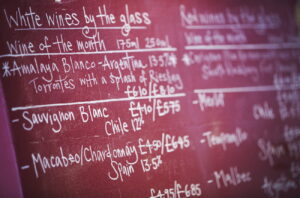 White wines by the glass
Wine of the month 175ml 250ml
*Amalaya Blanco - Argentina 13.5%
Torrontes with a splash of Riesling
£610/£810
-Sauvignon Blanc £410/£575
Chile 12%
-Macabeo/Chardonnay £450/£645
Spain 13.5%
£495/£685
Red wines by the
Wine of the month
-Merlot
Chile
-Tempranillo
Spain
-Malbec